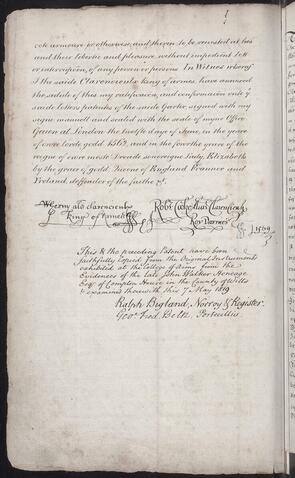 cote armoure or otherwise, and therin to be revested at his
and there libertie and pleasure without impediment lett
or interuption, of any person or persons. In Witnes wherof
I the saide Clarencieulx king of armes, have annexed
the sedule of this my ratificacion and confirmation unto yͤ
saide letters patentes of the saide Garter, signed with my
signe manuell and sealed with the seale of myne office
Geven at London the twelfte daye of June, in the yeare
of owre lorde godd 1562, and in the fowrthe yeare of the
reigne of owre moste dreade sovereigne lady, Elizabeth
by the grace of godd, Quene of England Fraunce and
Ireland, deffender of the faithe &c.
king of armes
Roy Darmes
1569
This & the preceding Patent have been
faithfully copied from the Original Instruments
exhibited at the College of Arms from the
Evidences of the late John Walker Heneage
Esqr. of Compton House in the County of Wilts
& examined therewith this 7 May 1819
Ralph Bigland, Norroy & Register.
Geo. Fred. Beltz. Portcullis